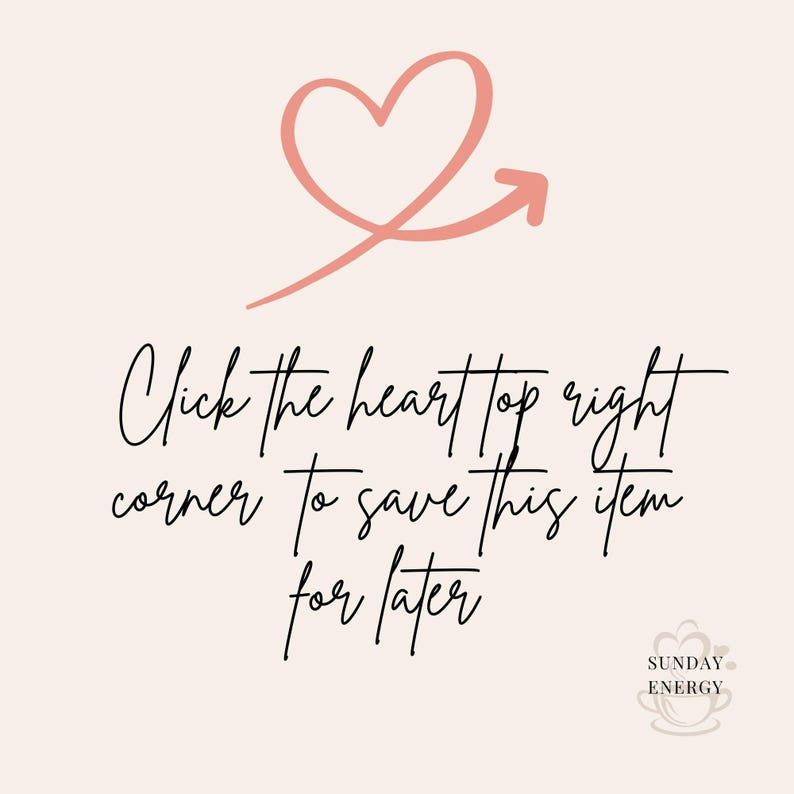 Click the heart top right
corner to save this item
for later
SUNDAY
ENERGY